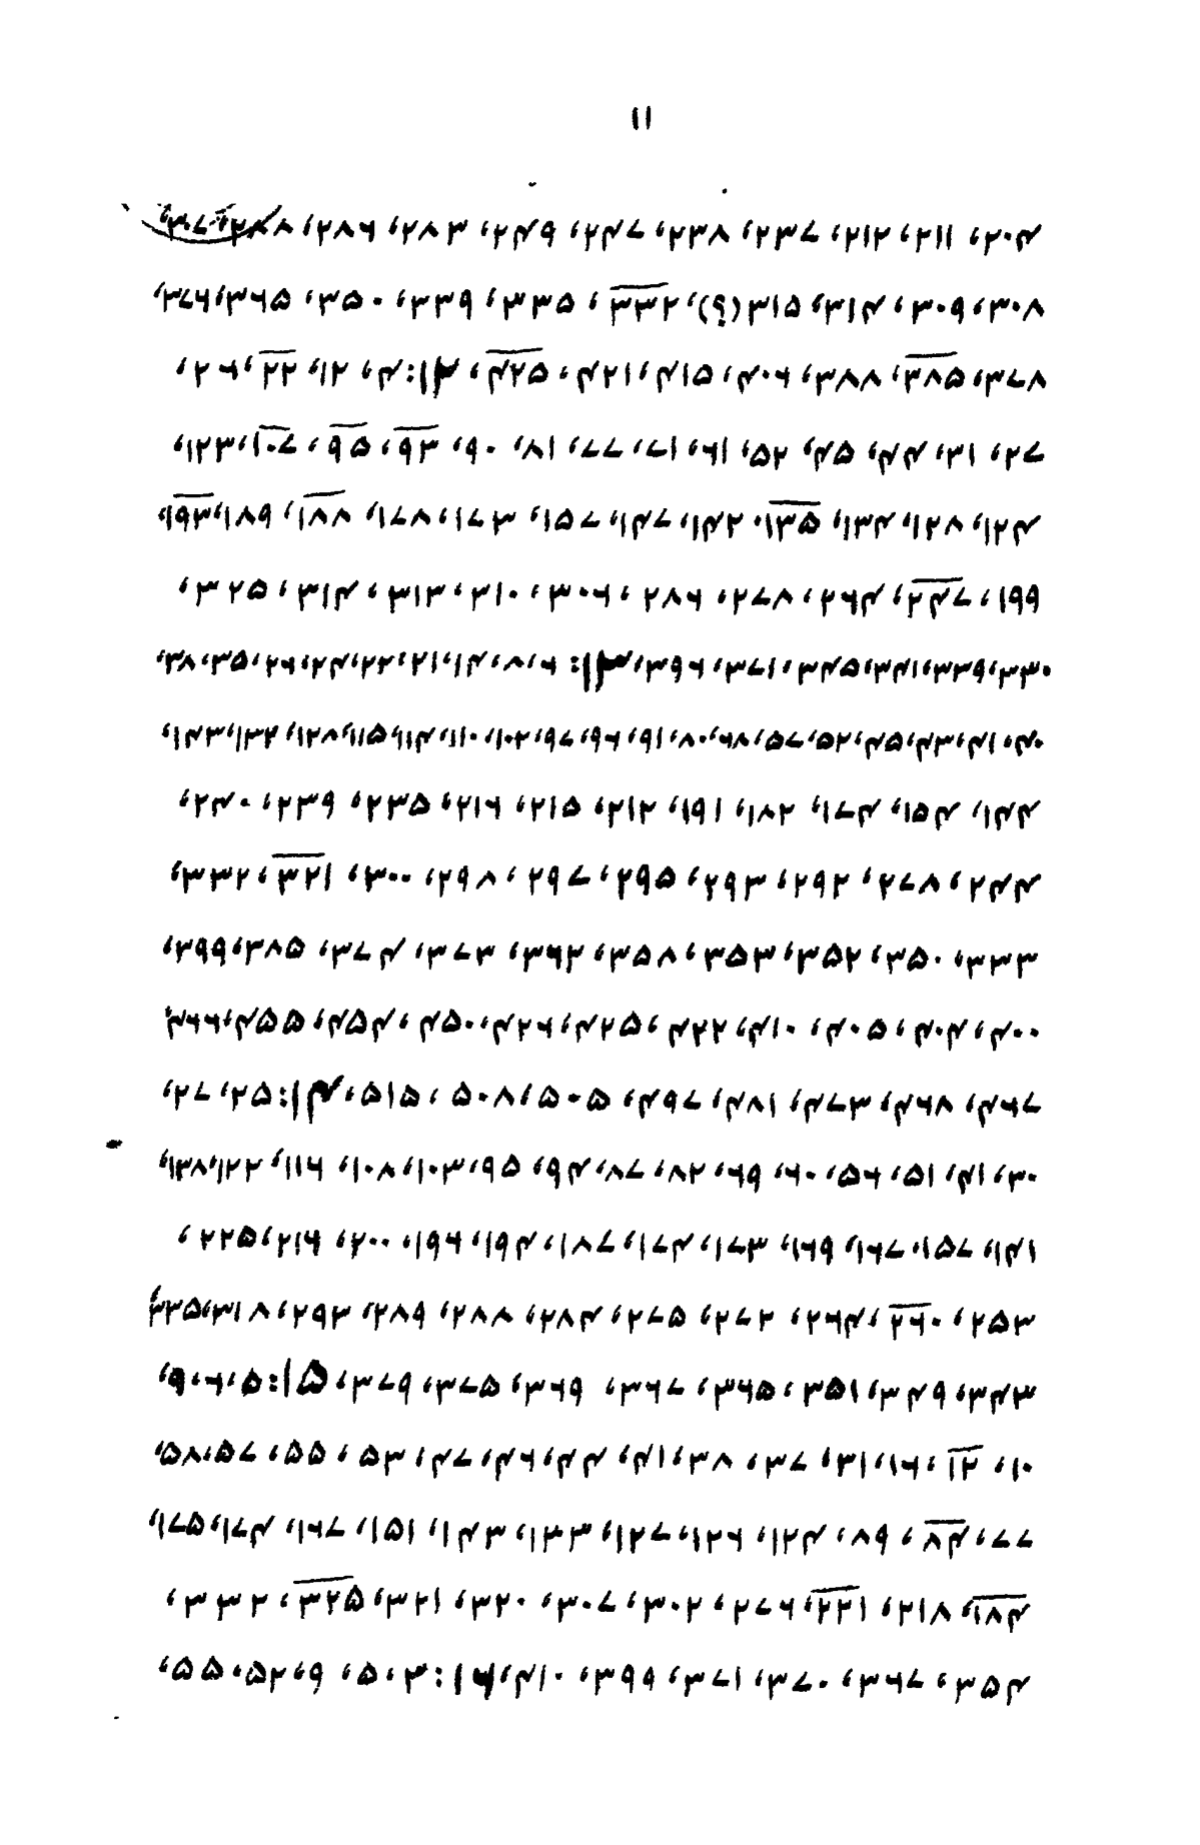 ۱۱
۲۰۴، ۲۱۱، ۲۱۲، ۲۳۷، ۲۳۸، ۲۴۷، ۲۴۹، ۲۸۳، ۲۸۶، ۲۸۸،
۳۰۸، ۳۰۹، ۳۱۴، ۳۱۵(؟)، ۳۳۲، ۳۳۵، ۳۳۹، ۳۵۰، ۳۶۵، ۳۷۶،
۳۷۸، ۳۸۵، ۳۸۸، ۴۰۶، ۴۱۵، ۴۲۱، ۴۲۵، ۱۲: ۴، ۱۲، ۲۲، ۲۶،
۲۷، ۳۱، ۴۴، ۴۵، ۵۲، ۶۱، ۷۱، ۷۷، ۸۱، ۹۰، ۹۳، ۹۵، ۱۰۷، ۱۲۳،
۱۲۴، ۱۲۸، ۱۳۴، ۱۳۵، ۱۴۲، ۱۴۷، ۱۵۷، ۱۷۳، ۱۷۸، ۱۸۸، ۱۸۹، ۱۹۳،
۱۹۹، ۲۴۷، ۲۶۴، ۲۷۸، ۲۸۶، ۳۰۶، ۳۱۰، ۳۱۳، ۳۱۴، ۳۲۵،
۳۳۰، ۳۳۹، ۳۴۱، ۳۴۵، ۳۷۱، ۳۹۶، ۱۳: ۶، ۸، ۱۴، ۲۱، ۲۲، ۲۴، ۲۶، ۳۵، ۳۸،
۴۰، ۴۱، ۴۳، ۴۵، ۵۲، ۵۷، ۶۸، ۸۰، ۹۱، ۹۶، ۹۷، ۱۰۲، ۱۱۰، ۱۱۴، ۱۱۵، ۱۲۸، ۱۳۲، ۱۴۳،
۱۴۴، ۱۵۴، ۱۷۴، ۱۸۲، ۱۹۱، ۲۱۲، ۲۱۵، ۲۱۶، ۲۳۵، ۲۳۹، ۲۴۰،
۲۴۴، ۲۷۸، ۲۹۲، ۲۹۳، ۲۹۵، ۲۹۷، ۲۹۸، ۳۰۰، ۳۲۱، ۳۳۲،
۳۳۳، ۳۵۰، ۳۵۲، ۳۵۳، ۳۵۸، ۳۶۲، ۳۷۳، ۳۷۴، ۳۸۵، ۳۹۹،
۴۰۰، ۴۰۴، ۴۰۵، ۴۱۰، ۴۲۲، ۴۲۵، ۴۲۶، ۴۵۰، ۴۵۴، ۴۵۵، ۴۶۶،
۴۶۷، ۴۶۸، ۴۷۳، ۴۸۱، ۴۹۷، ۵۰۵، ۵۰۸، ۵۱۵، ۱۴: ۲۵، ۲۷،
۳۰، ۴۱، ۵۱، ۵۶، ۶۰، ۶۹، ۸۲، ۸۷، ۹۴، ۹۵، ۱۰۳، ۱۰۸، ۱۱۶، ۱۲۲، ۱۳۸،
۱۴۱، ۱۵۷، ۱۶۷، ۱۶۹، ۱۷۳، ۱۷۴، ۱۸۷، ۱۹۴، ۱۹۶، ۲۰۰، ۲۱۶، ۲۲۵،
۲۵۳، ۲۶۰، ۲۶۴، ۲۷۲، ۲۷۵، ۲۸۴، ۲۸۸، ۲۸۹، ۲۹۳، ۳۱۸، ۳۳۵،
۳۴۳، ۳۴۹، ۳۵۱، ۳۶۵، ۳۶۷، ۳۶۹، ۳۷۵، ۳۷۹، ۱۵: ۵، ۶، ۹،
۱۰، ۱۲، ۱۶، ۳۱، ۳۷، ۳۸، ۴۱، ۴۴، ۴۶، ۴۷، ۵۳، ۵۵، ۵۷، ۵۸،
۷۷، ۸۴، ۸۹، ۱۲۴، ۱۲۶، ۱۲۷، ۱۳۳، ۱۴۳، ۱۵۱، ۱۶۷، ۱۷۴، ۱۷۵،
۱۸۴، ۲۱۸، ۲۲۱، ۲۷۶، ۳۰۲، ۳۰۷، ۳۲۰، ۳۲۱، ۳۲۵، ۳۳۲،
۳۵۴، ۳۶۷، ۳۷۰، ۳۷۱، ۳۹۹، ۴۱۰، ۱۶: ۳، ۵، ۹، ۵۲، ۵۵،